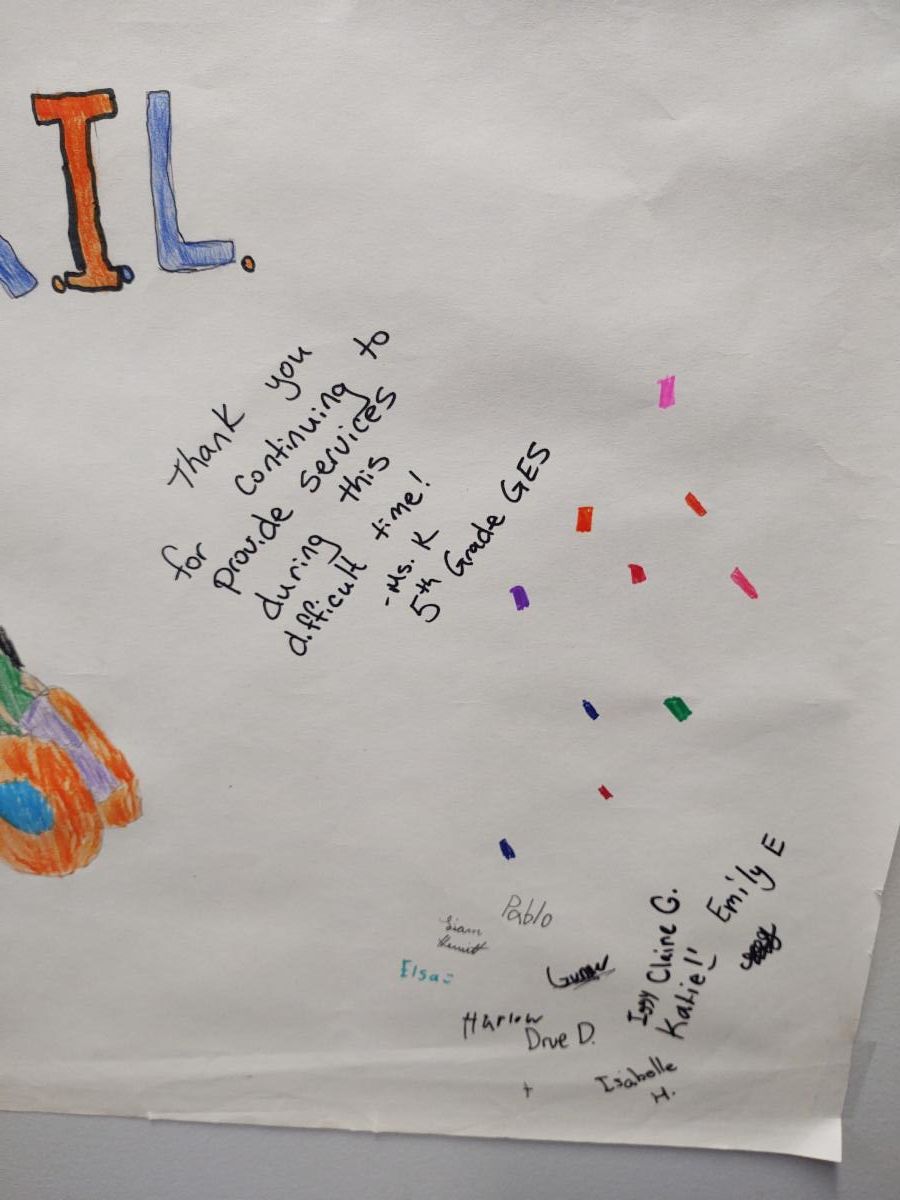 IL.
Thank you
for continuing to
provide services
during this
difficult time!
-Ms. K
5th Grade GES
Pablo
Liam
Elsa
Gunner
Harlow
Drue D.
Izzy Claire G.
Katie!
Emily E
Isabelle
H.